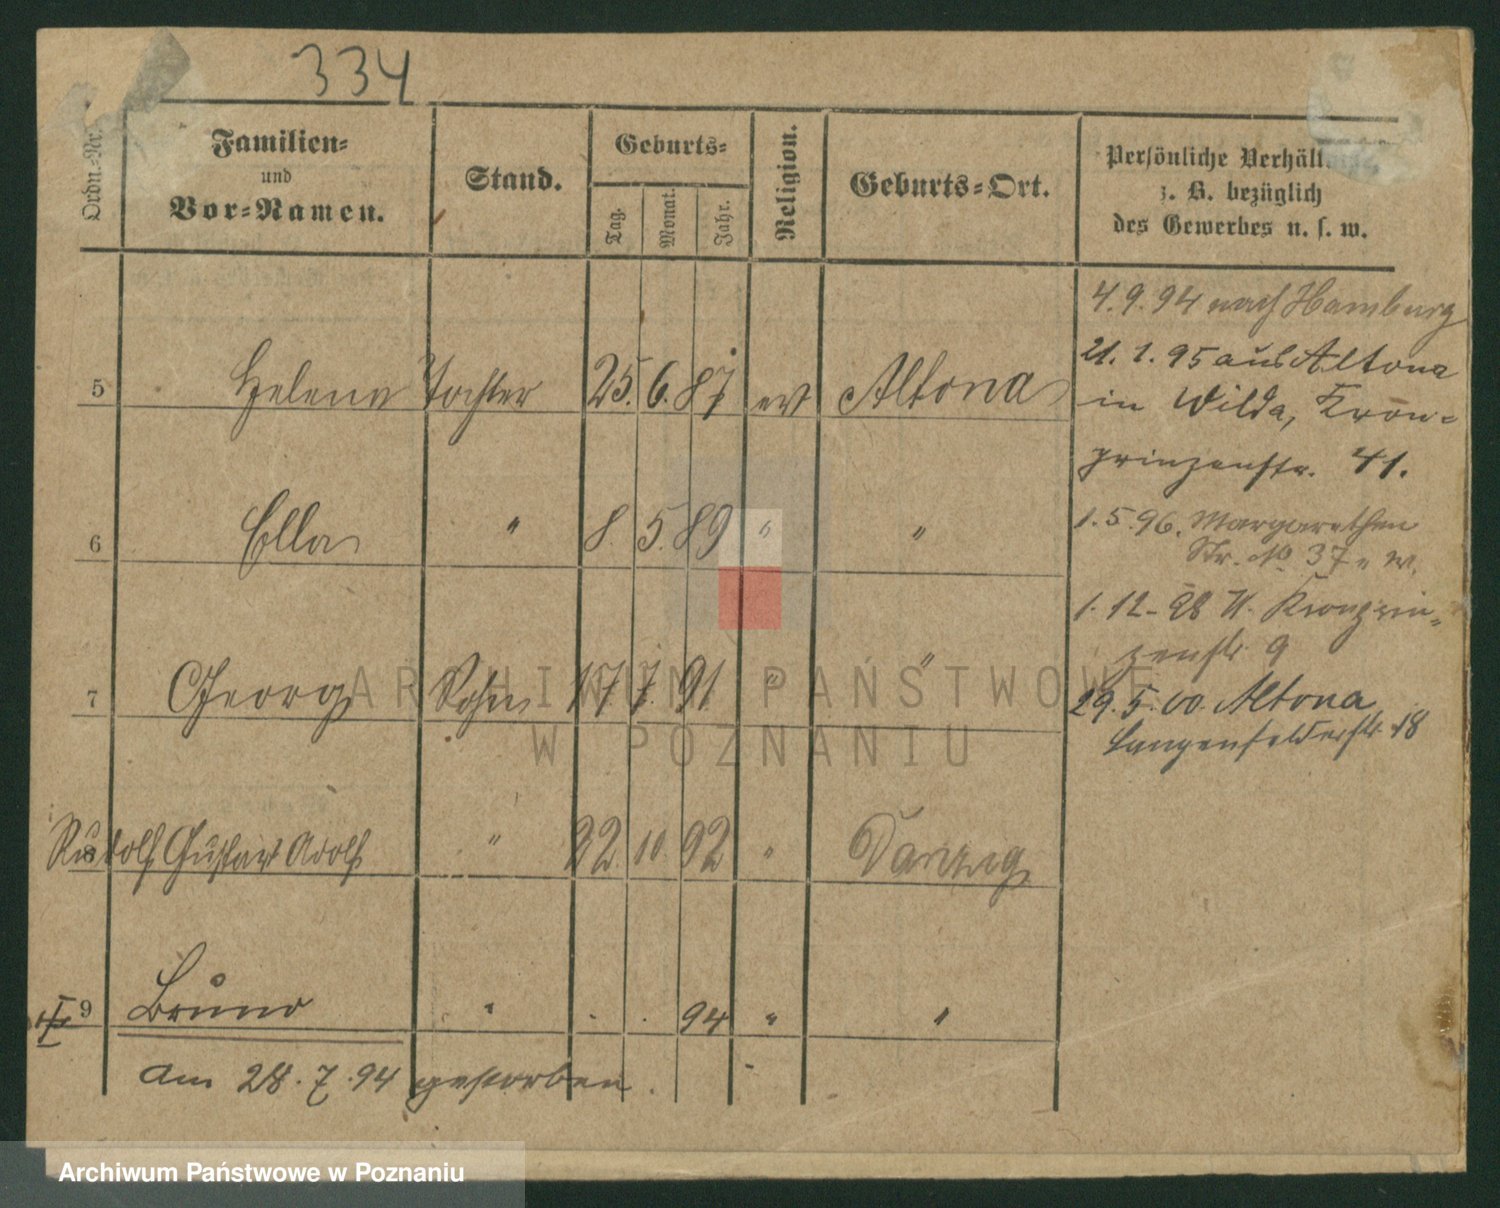 334
Ordn.-Nr.
Familien-
und
Vor-Namen.
Stand.
Geburts-
Tag.
Monat.
Jahr.
Religion.
Geburts-Ort.
Persönliche Verhält
z. B. bezüglich
des Gewerbes u. s. w.
4.9.94 nach Hamburg
21.1.95 aus Altona
5 Helene Tochter 25. 6. 87 ev Altona
in Wilda, Kron-
prinzenstr. 41.
6 Ella " 8. 5. 89 " "
1.5.96. Margarethen
Str. No 37 " W.
1.12. 98 W. Kronprin-
zenstr. 9
7 Georg Sohn 17. 7. 91 " "
29.5.00. Altona
Langenfelderstr. 18
Rudolf Gustav Adolf " 22. 10. 92 " Danzig
9 Bruno " . . 94 " "
am 28.7.94 gestorben.
ARCHIWUM PAŃSTWOWE
W POZNANIU
Archiwum Państwowe w Poznaniu